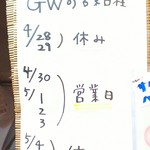 GWの営業日程
4/28
29) 休み
4/30
5/1
2
3) 営業日
5/4